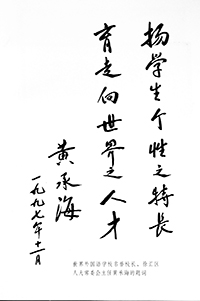 扬学生个性之特长
育走向世界之人才
黄承海
一九九七年十一月
世界外国语学校名誉校长、徐汇区
人大常委会主任黄承海的题词